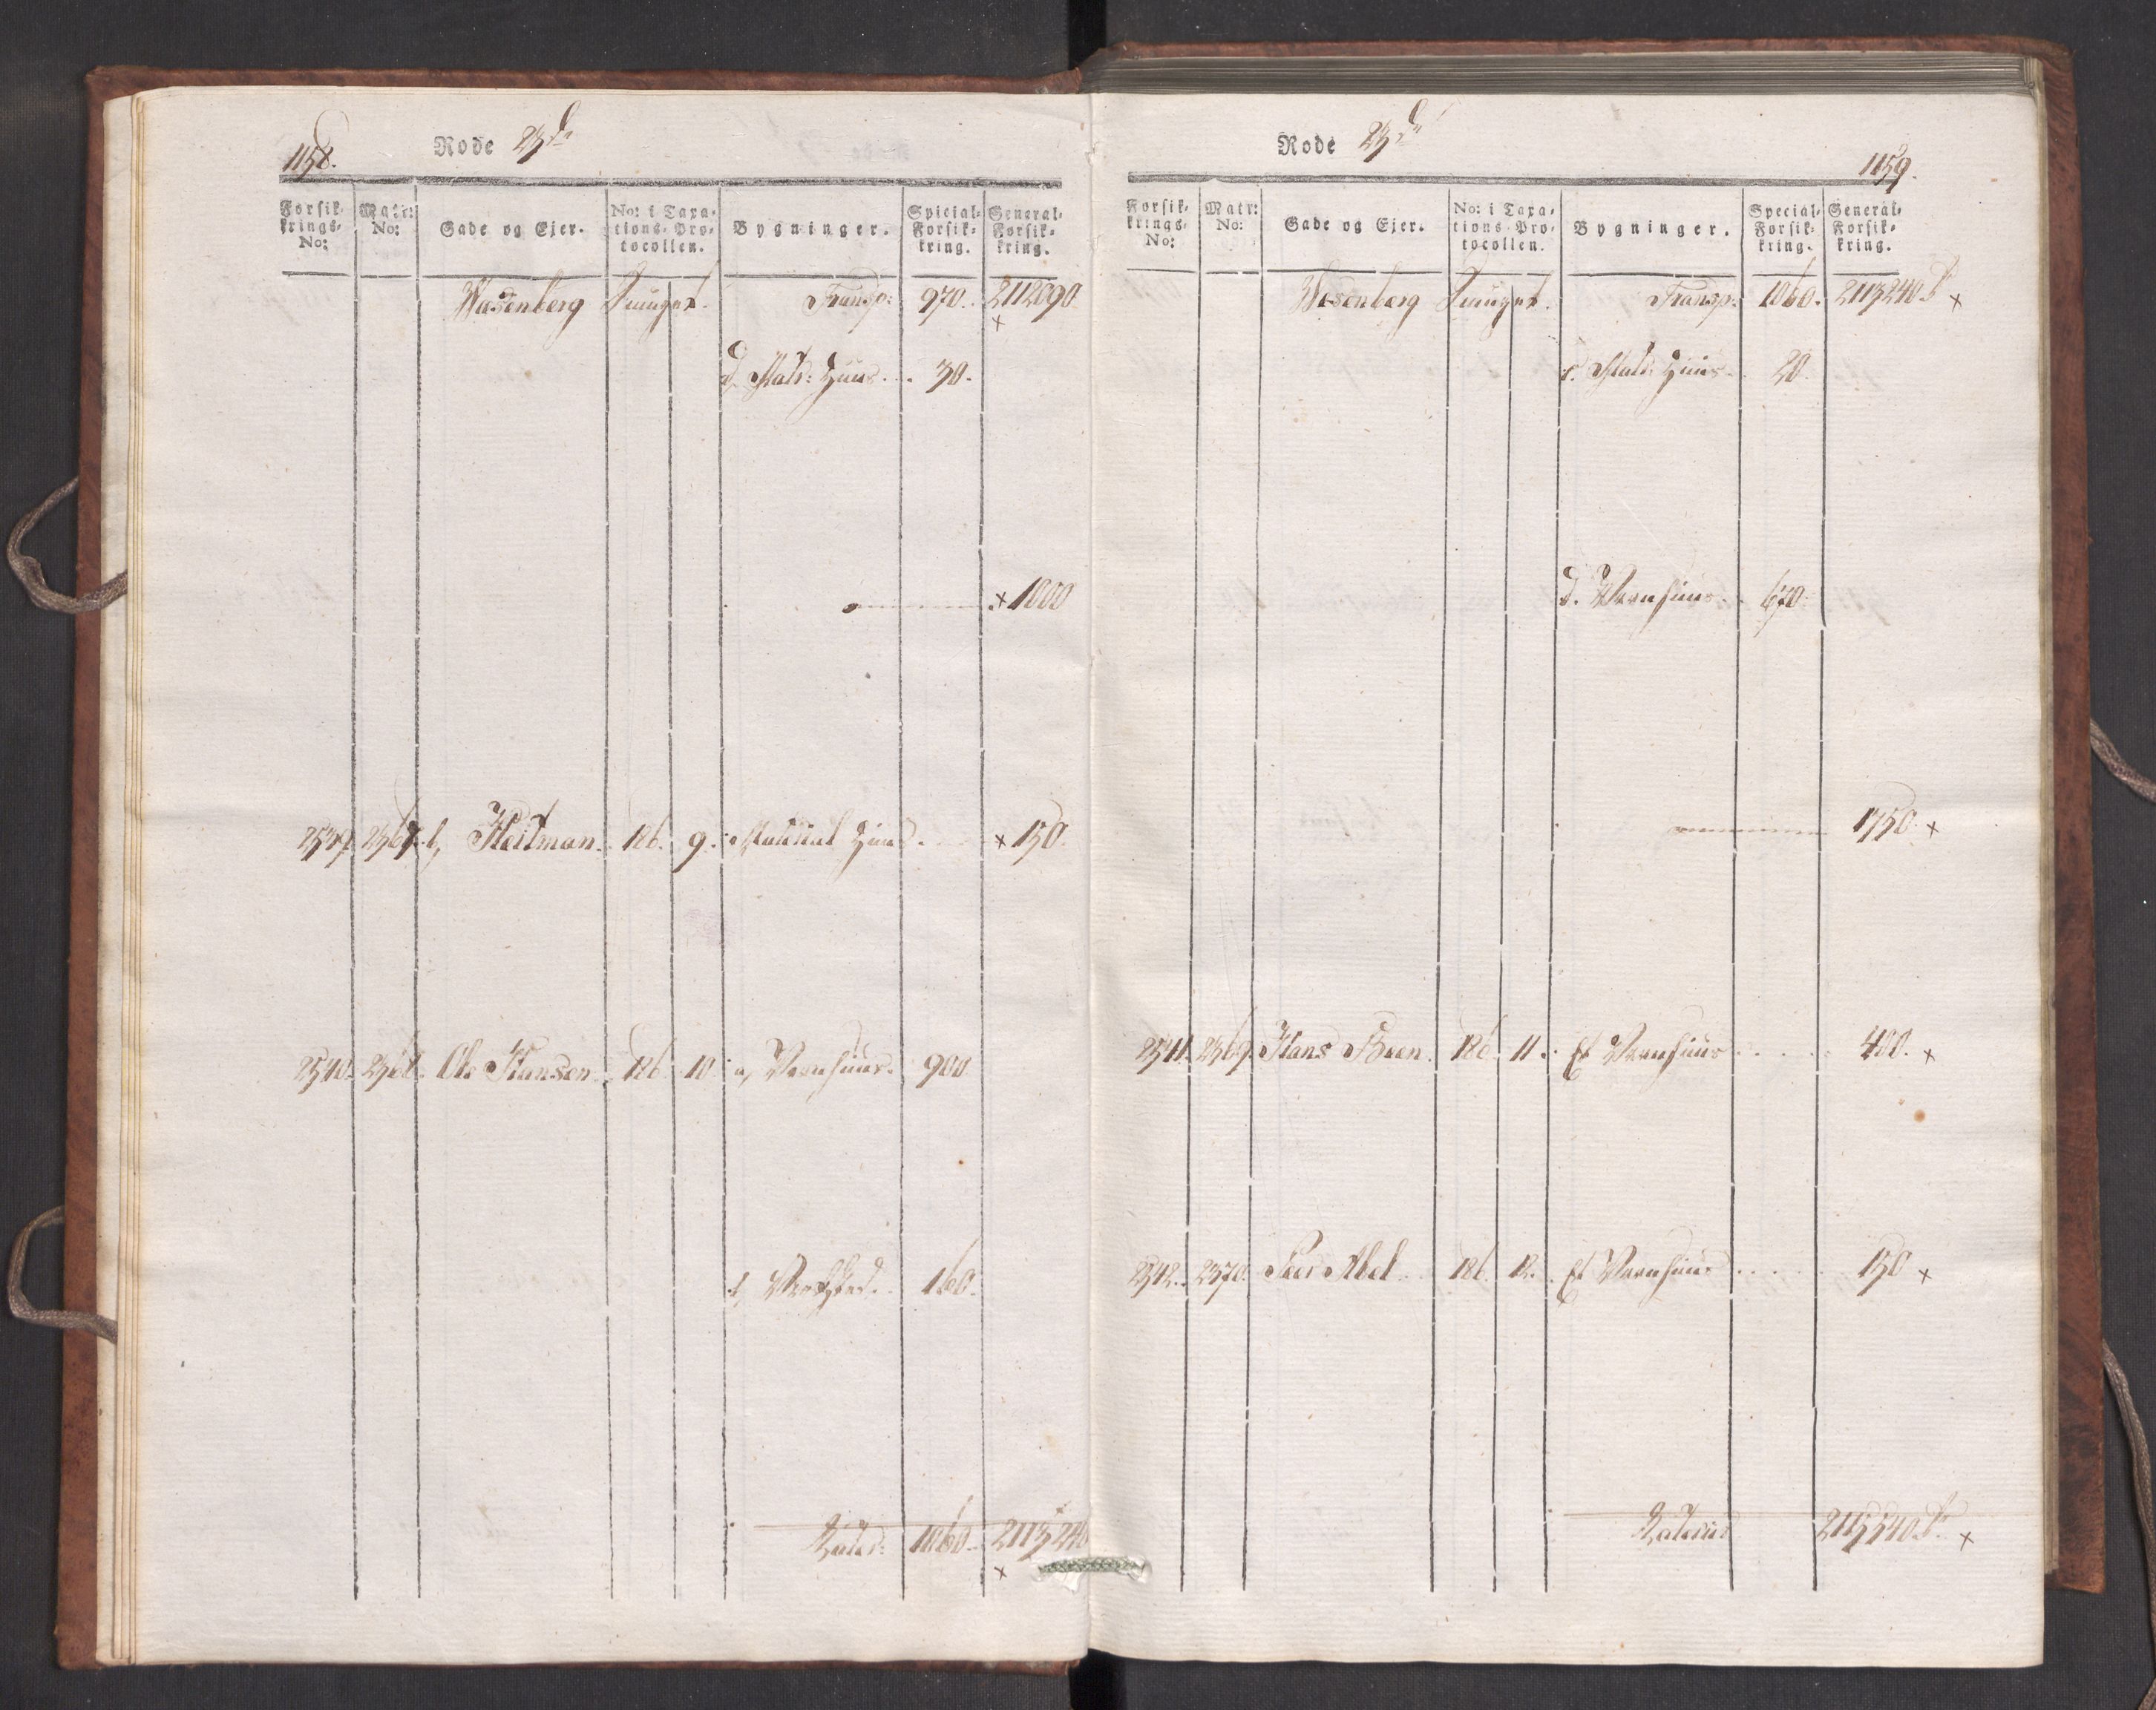 1158.
Rode 23de
Forsik-
krings-
No:
Matr:
No:
Gade og Ejer.
No: i Taxa-
tions-Pro-
tocollen.
Bygninger.
Special-
Forsik-
kring.
General-
Forsik-
kring.
Wasenberg Smuget. Transp: 970. 2112090
x
d. Matr: Huus . . 30.
x 1000
2539. 2367. b, Heitman. 186. 9. Material Huus . x 150.
2540. 2368. Ole Hansen. 186. 10. a, Vaanhuus. 900
b, Værksted. 160.
Lateris: 1060. 2113240
x
Rode 23de
1159.
Forsik-
krings-
No:
Matr:
No:
Gade og Ejer.
No: i Taxa-
tions-Pro-
tocollen.
Bygninger.
Special-
Forsik-
kring.
General-
Forsik-
kring.
Wasenberg Smuget. Transp: 1060. 2113240 x
c. Matr: Huus. 20.
d. Vaanhuus. 670.
1750. x
2541. 2369. Hans Been. 186. 11. Et Vaanhuus . . . . 400. x
2542. 2370. Peer Abel. 186. 12. Et Vaanhuus . . . . 150 x
Lateris 2115540 x